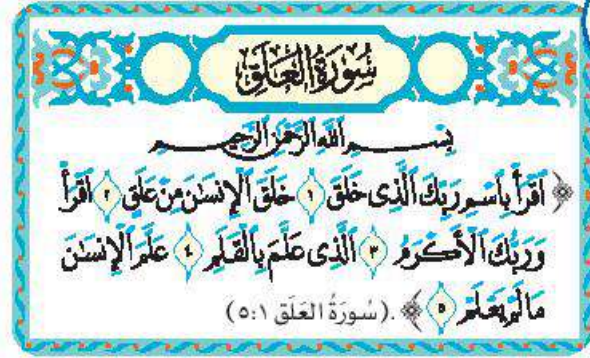 سُورَةُ العَلَق
بِسْمِ اللَّهِ الرَّحْمَٰنِ الرَّحِيمِ
﴿ اقْرَأْ بِاسْمِ رَبِّكَ الَّذِي خَلَقَ ١ خَلَقَ الْإِنسَٰنَ مِنْ عَلَقٍ ٢ اقْرَأْ
وَرَبُّكَ الْأَكْرَمُ ٣ الَّذِي عَلَّمَ بِالْقَلَمِ ٤ عَلَّمَ الْإِنسَٰنَ
مَا لَمْ يَعْلَمْ ٥ ﴾. (سُورَةُ العَلَق ٥:١)